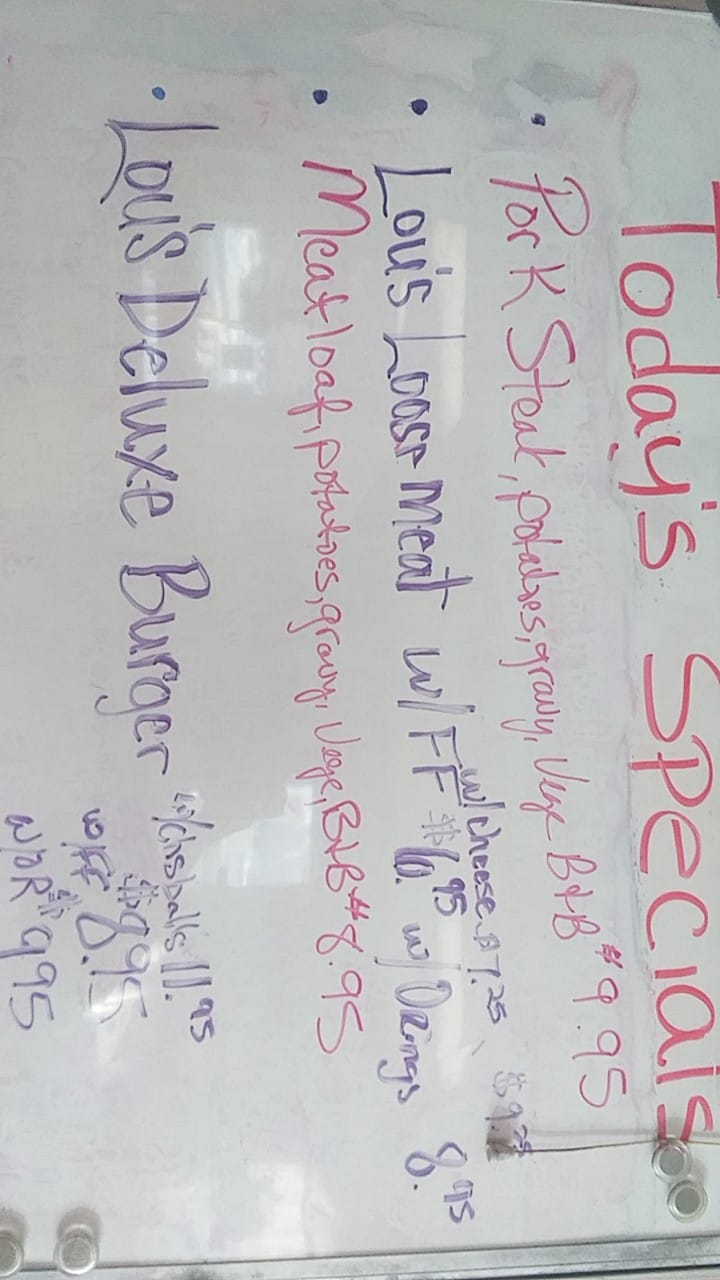 Today's Specials
• Pork Steak, potatoes, gravy, Vege B+B $9.95
w/cheese $7.25 $9.25
• Lou's Loose Meat w/FF $6.95 w/O Rings 8.95
• Meatloaf, potatoes, gravy, Vege, B+B $8.95
• Lou's Deluxe Burger w/chsballs 11.95
$8.95
w/FF
w/OR $9.95